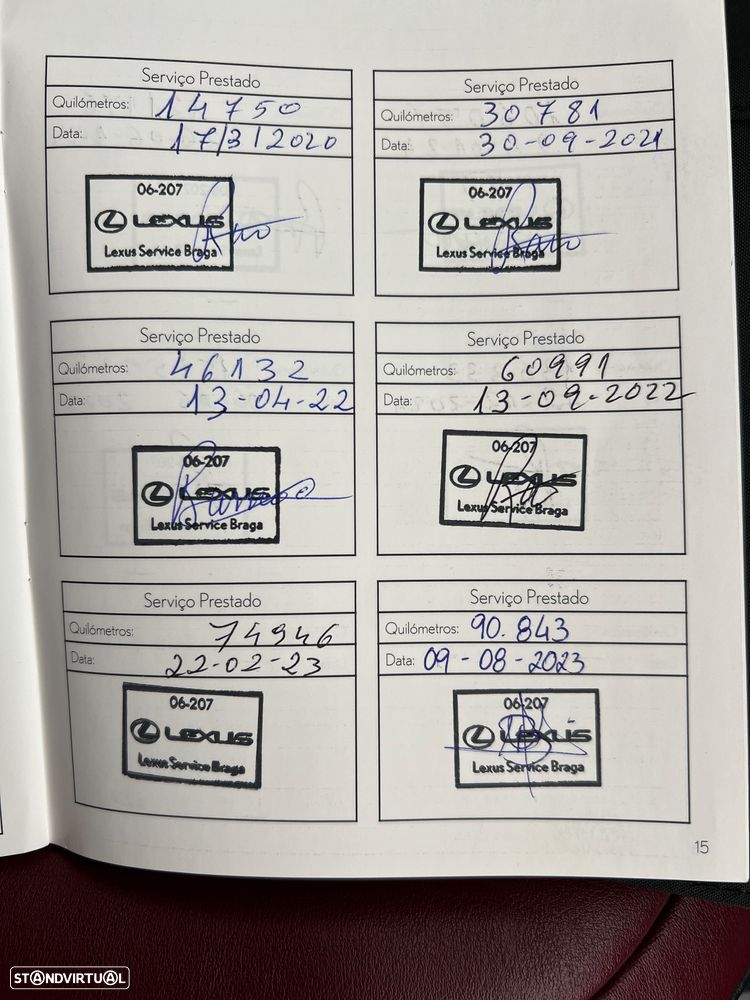 Serviço Prestado
Quilómetros: 14750
Data: 17/3/2020
06-207
LEXUS
Lexus Service Braga
Serviço Prestado
Quilómetros: 30781
Data: 30-09-2021
06-207
LEXUS
Lexus Service Braga
Serviço Prestado
Quilómetros: 46132
Data: 13-04-22
06-207
LEXUS
Lexus Service Braga
Serviço Prestado
Quilómetros: 60991
Data: 13-09-2022
06-207
LEXUS
Lexus Service Braga
Serviço Prestado
Quilómetros: 74946
Data: 22-02-23
06-207
LEXUS
Lexus Service Braga
Serviço Prestado
Quilómetros: 90.843
Data: 09-08-2023
06-207
LEXUS
Lexus Service Braga
15
STANDVIRTUAL